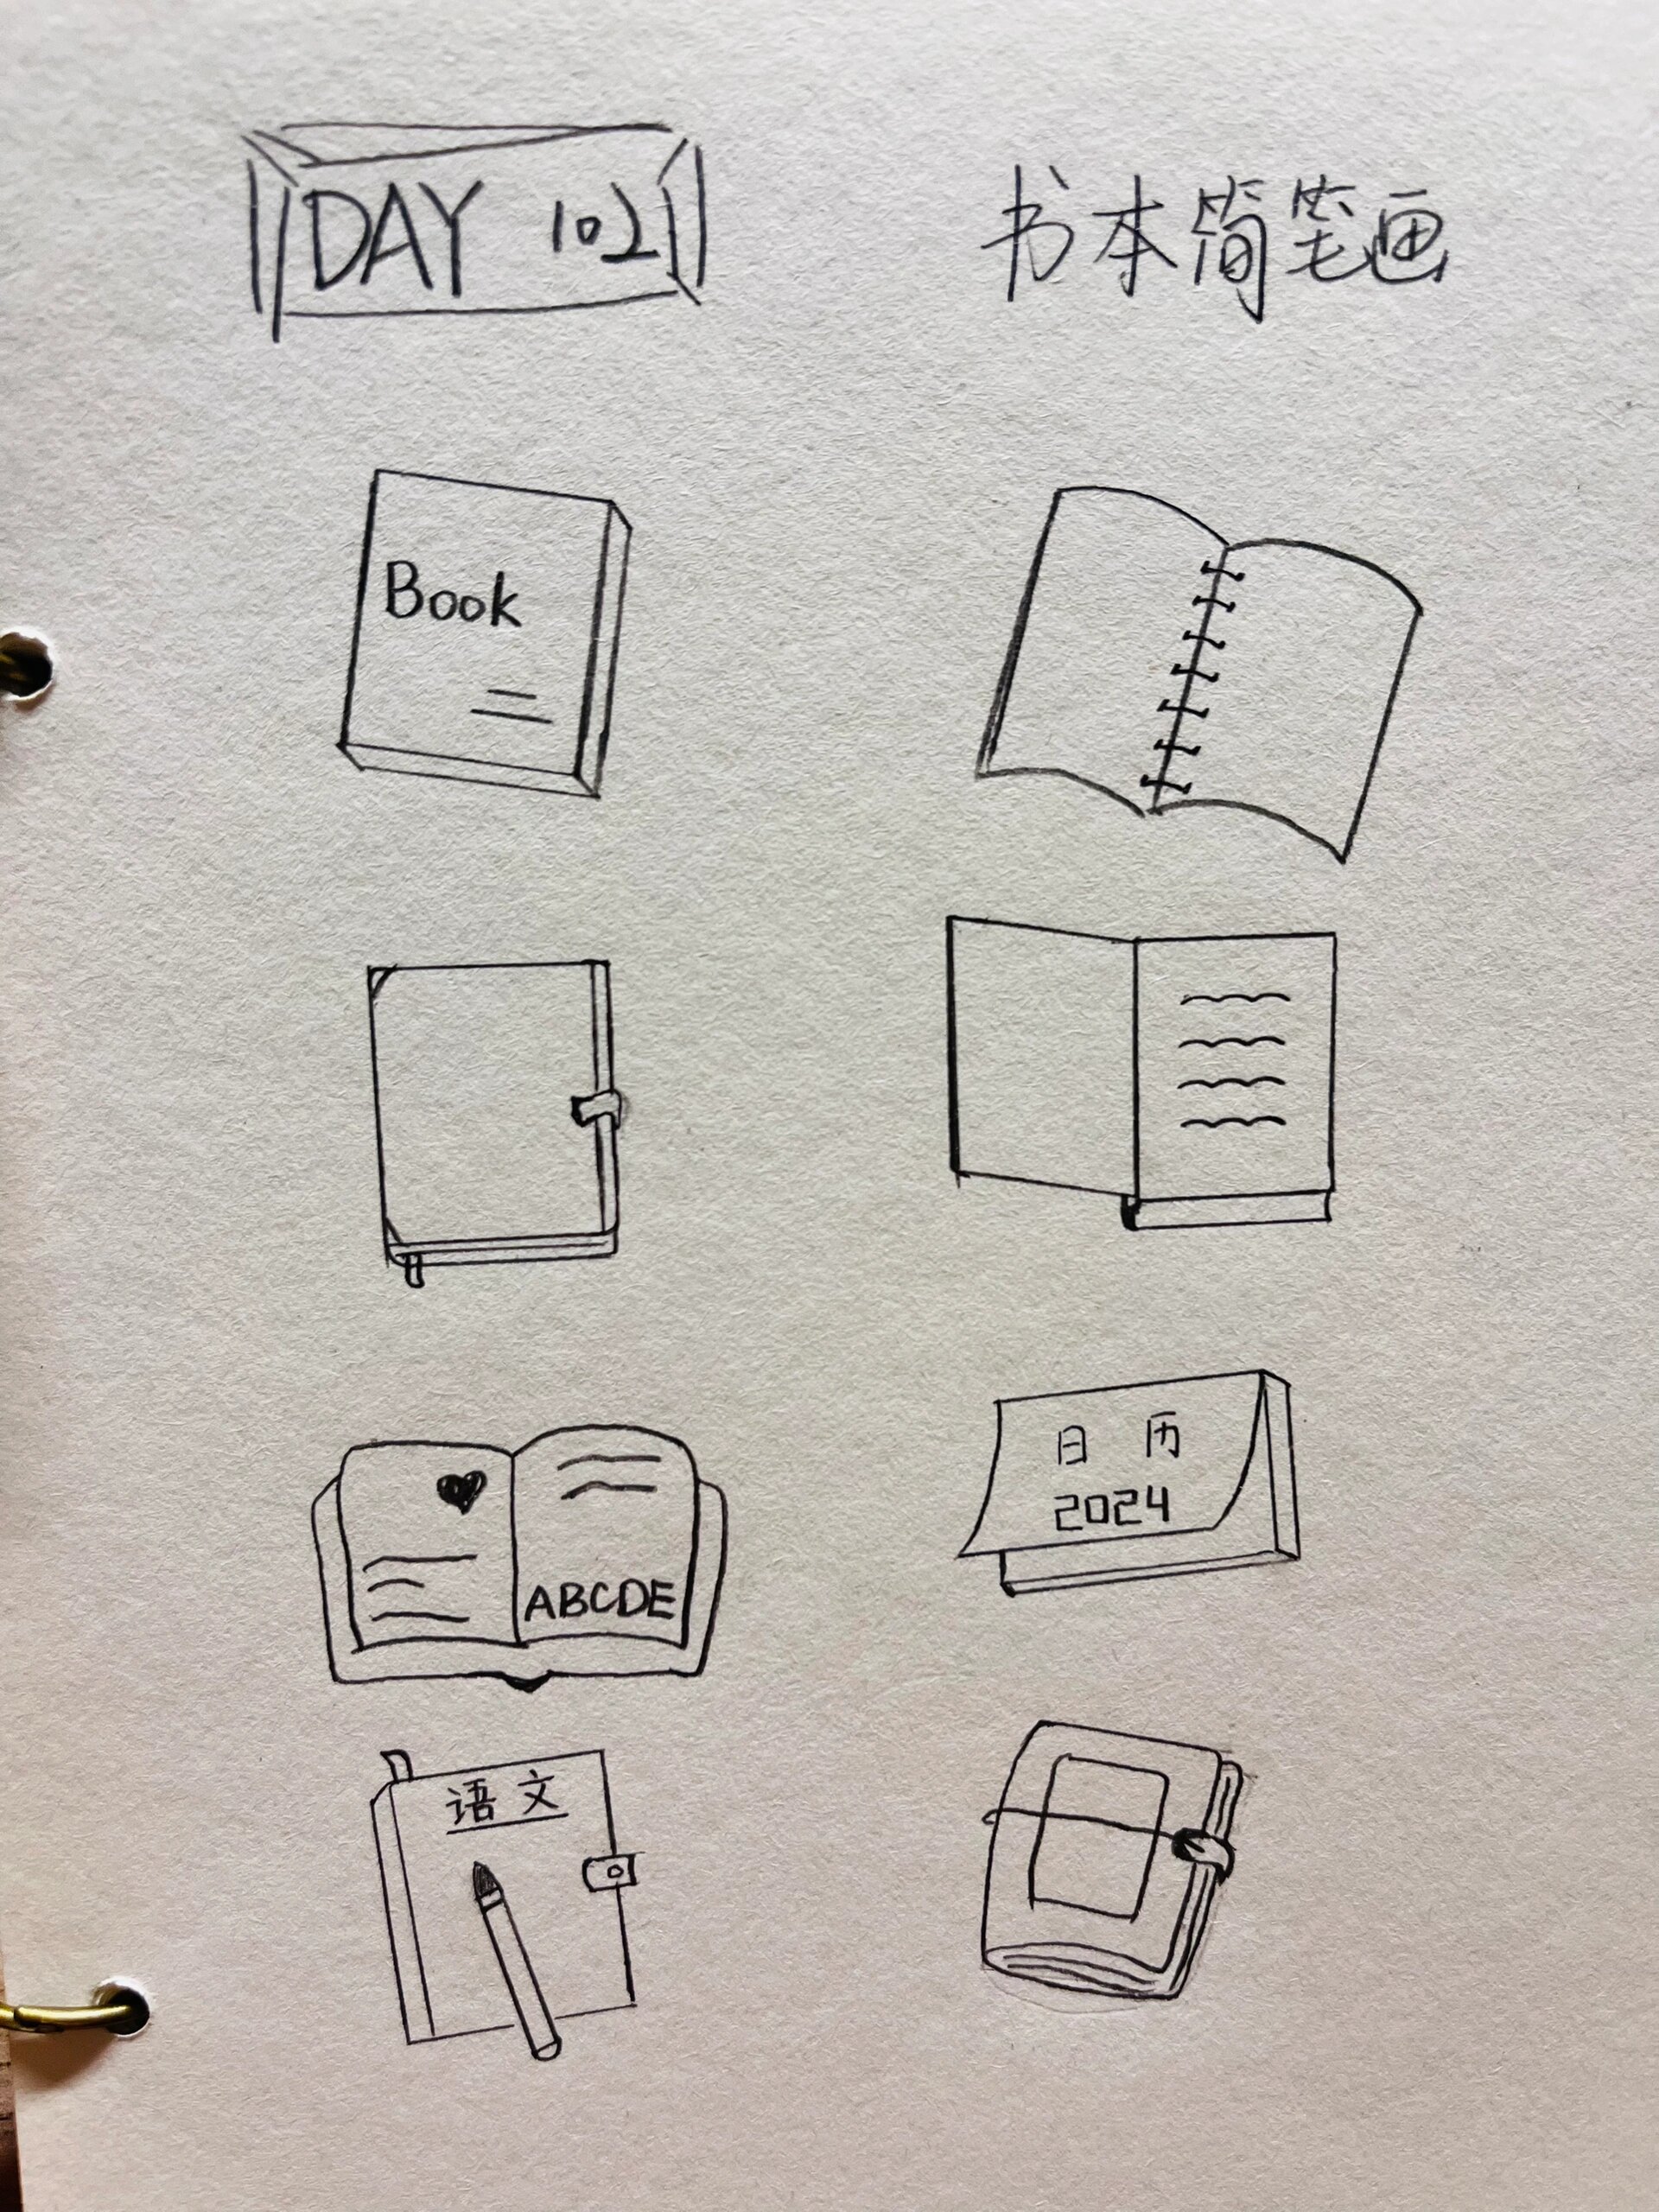 DAY 102
书本简笔画
Book
ABCDE
日 历
2024
语文